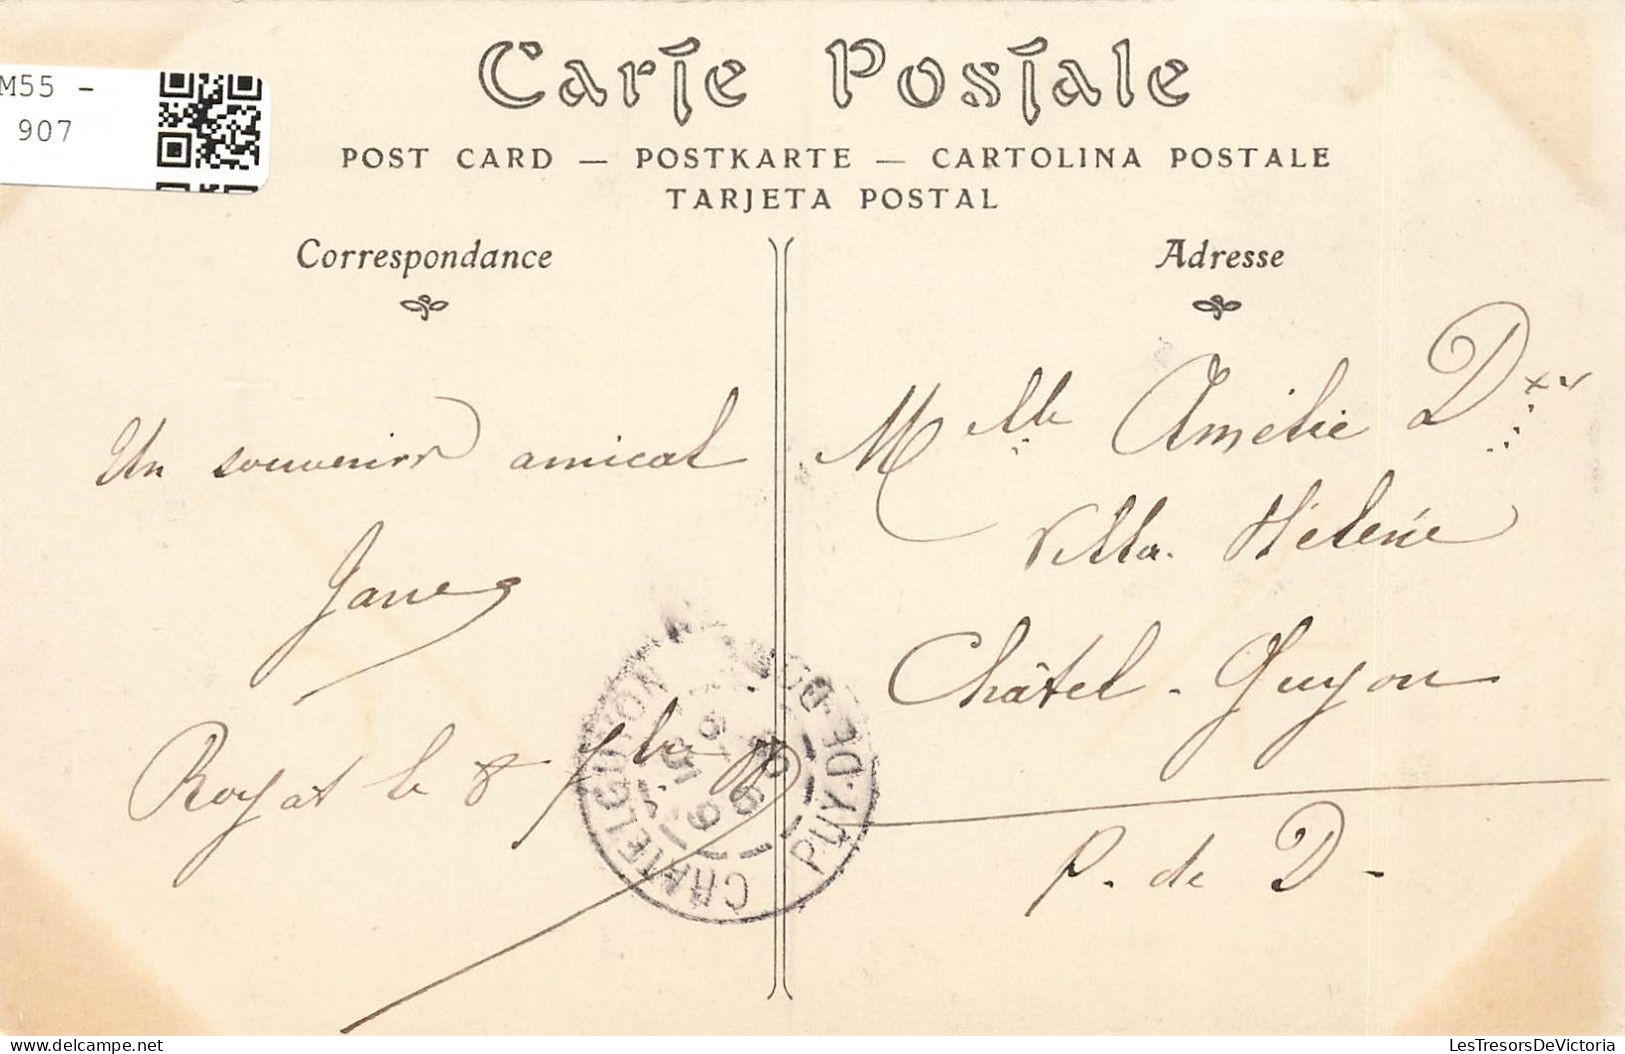 M55 -
907
Carte Postale
POST CARD — POSTKARTE — CARTOLINA POSTALE
TARJETA POSTAL
Correspondance
Adresse
Un souvenir amical
Jane
Royat le 8 7bre
Melle Amélie D
Villa Hélène
Châtel-Guyon
P. de D-
CHATELGUYON
PUY-DE-DOME
delcampe.net
LesTresorsDeVictoria